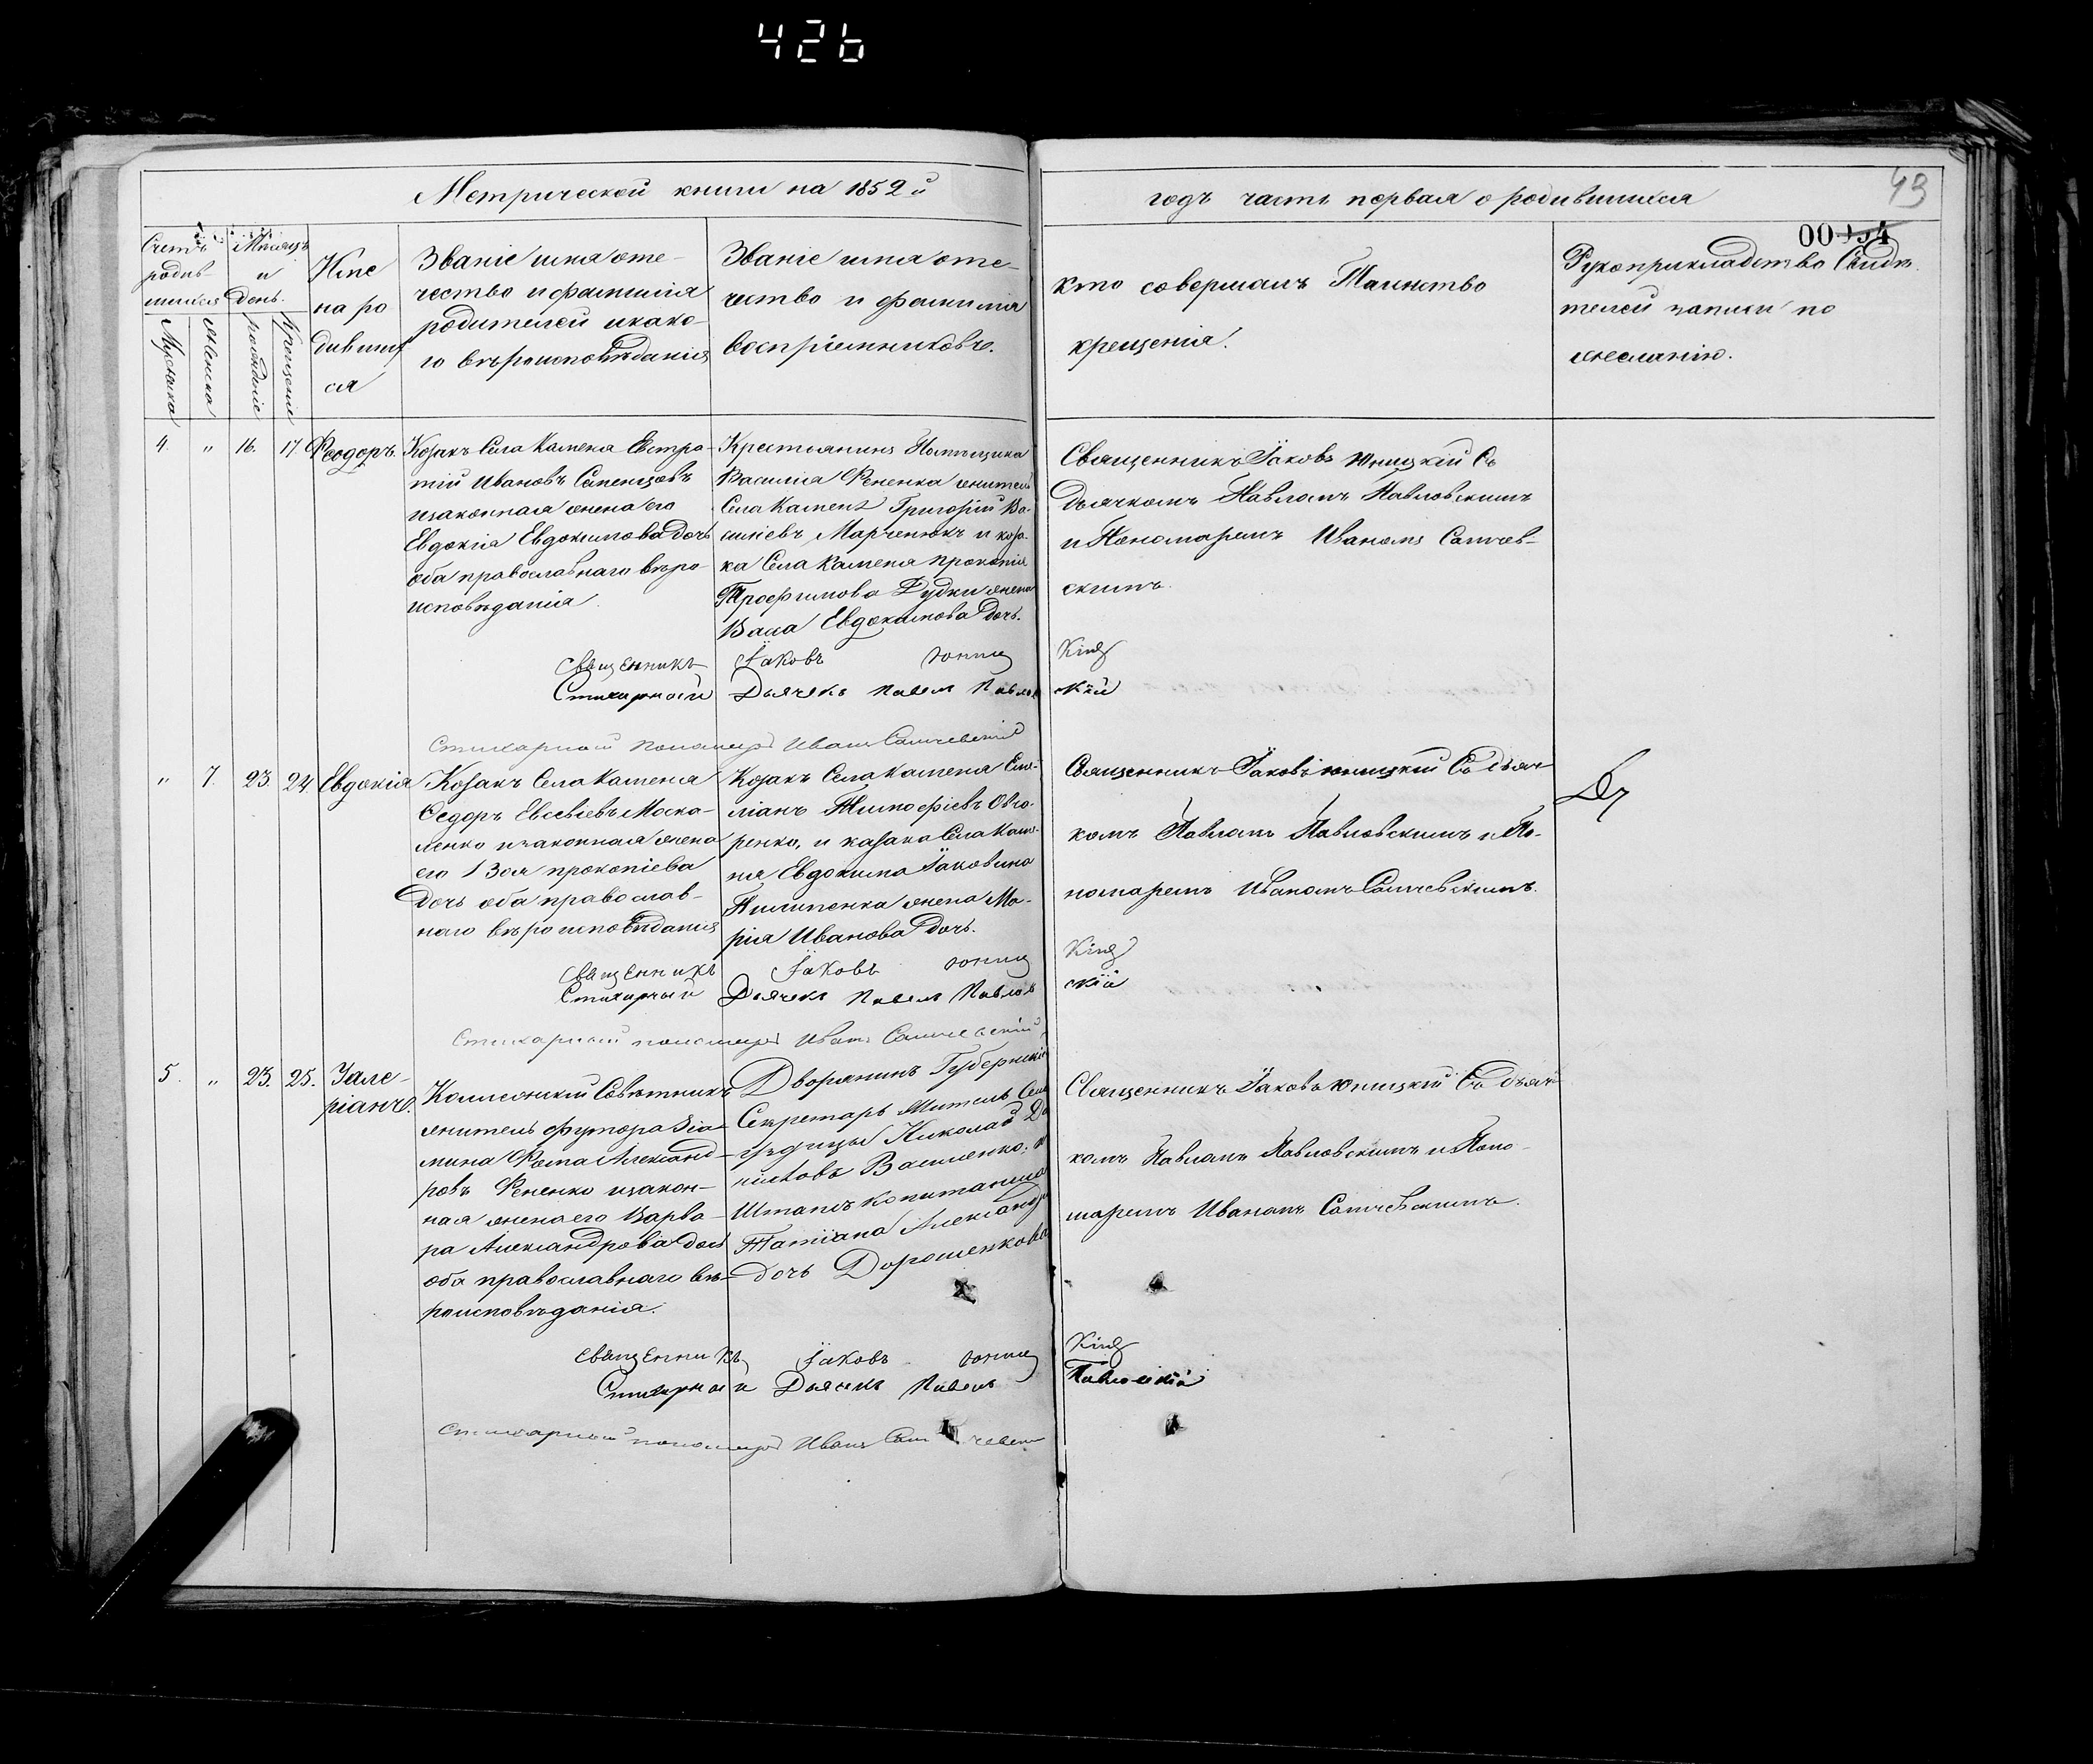 426
Метрической книги на 1852й
годъ часть первая о родившихся
43
00
Счетъ родив-шихся
Мужеска
Женска
Мѣсяцъ и день
рожденіе
крещеніе
на ро
дивших
ся
Званіе имя оте-
чество и фамилія
родителей и како-
го вѣроисповѣданія
Званіе имя оте-
чество и фамилія
воспріемниковъ.
кто совершалъ Таинство
крещенія.
Рукоприкладство Свидѣ
телей записи по
желанію.
4. " 16. 17. Феодоръ.
Козакъ Села Каменя Евстра-
тій Ивановъ
изаконная жена его
Евдокія Евдокимова дочь
оба православнаго вѣро-
исповѣданія.
Крестьянинъ Помѣщика
Василія Фененка житель
Села Каменя Григорій Ва-
силіевъ Марченокъ и коза-
ка Села Каменя Прокопія
Трофимова Дудки жена
Евдокимова дочь.
Священникъ Іаковъ Юницкій Съ
дьячкомъ Павломъ Павловскимъ
и Пономаремъ Иваномъ Самчев-
скимъ.
Священникъ Іаковъ Юниц кій
Стихарный Дьячекъ Павелъ Павловскій
Стихарный пономарь Иванъ Самчевскій
" 7. 23. 24. Евдокія
Козакъ Села Каменя
Федоръ Евсевіевъ Моска-
ленко изаконная жена
его Зоя Прокопіева
дочь оба православ-
наго вѣроисповѣданія
Козакъ Села Каменя Еми-
ліанъ Тимофіевъ Овча-
ренко, и казака Села Каме-
ня Евдокима Іаковина
Пилипенка жена Ма-
рія Иванова дочь.
Священникъ Іаковъ Юницкій Съ дьяч-
комъ Павломъ Павловскимъ и По-
номаремъ Иваномъ Самчевскимъ.
Священникъ Іаковъ Юниц кій
Стихарный Дьячекъ Павелъ Павлов скій
Стихарный пономарь Иванъ Самчевскій
5. " 23. 25. Вале-
ріанъ.
Коллежскій Совѣтникъ
житель футора
Фома Александ-
ровъ Фененко изакон-
ная жена его Варва-
ра Александрова дочь
оба православнаго вѣ-
роисповѣданія.
Дворянинъ Губернскій
Секретарь Житель Села
Николай Да
ниловъ Василенко, и
Штапсъ Копитанша
Татіана Александр
дочь Дорошенкова
Священникъ Іаковъ Юницкій Съ дьяч-
комъ Павломъ Павловскимъ и Поно-
маремъ Иваномъ Самчевскимъ.
Священникъ Іаковъ Юниц кій
Стихарный Дьячекъ Павелъ Павловскій
Стихарный пономарь Иванъ Самчевск